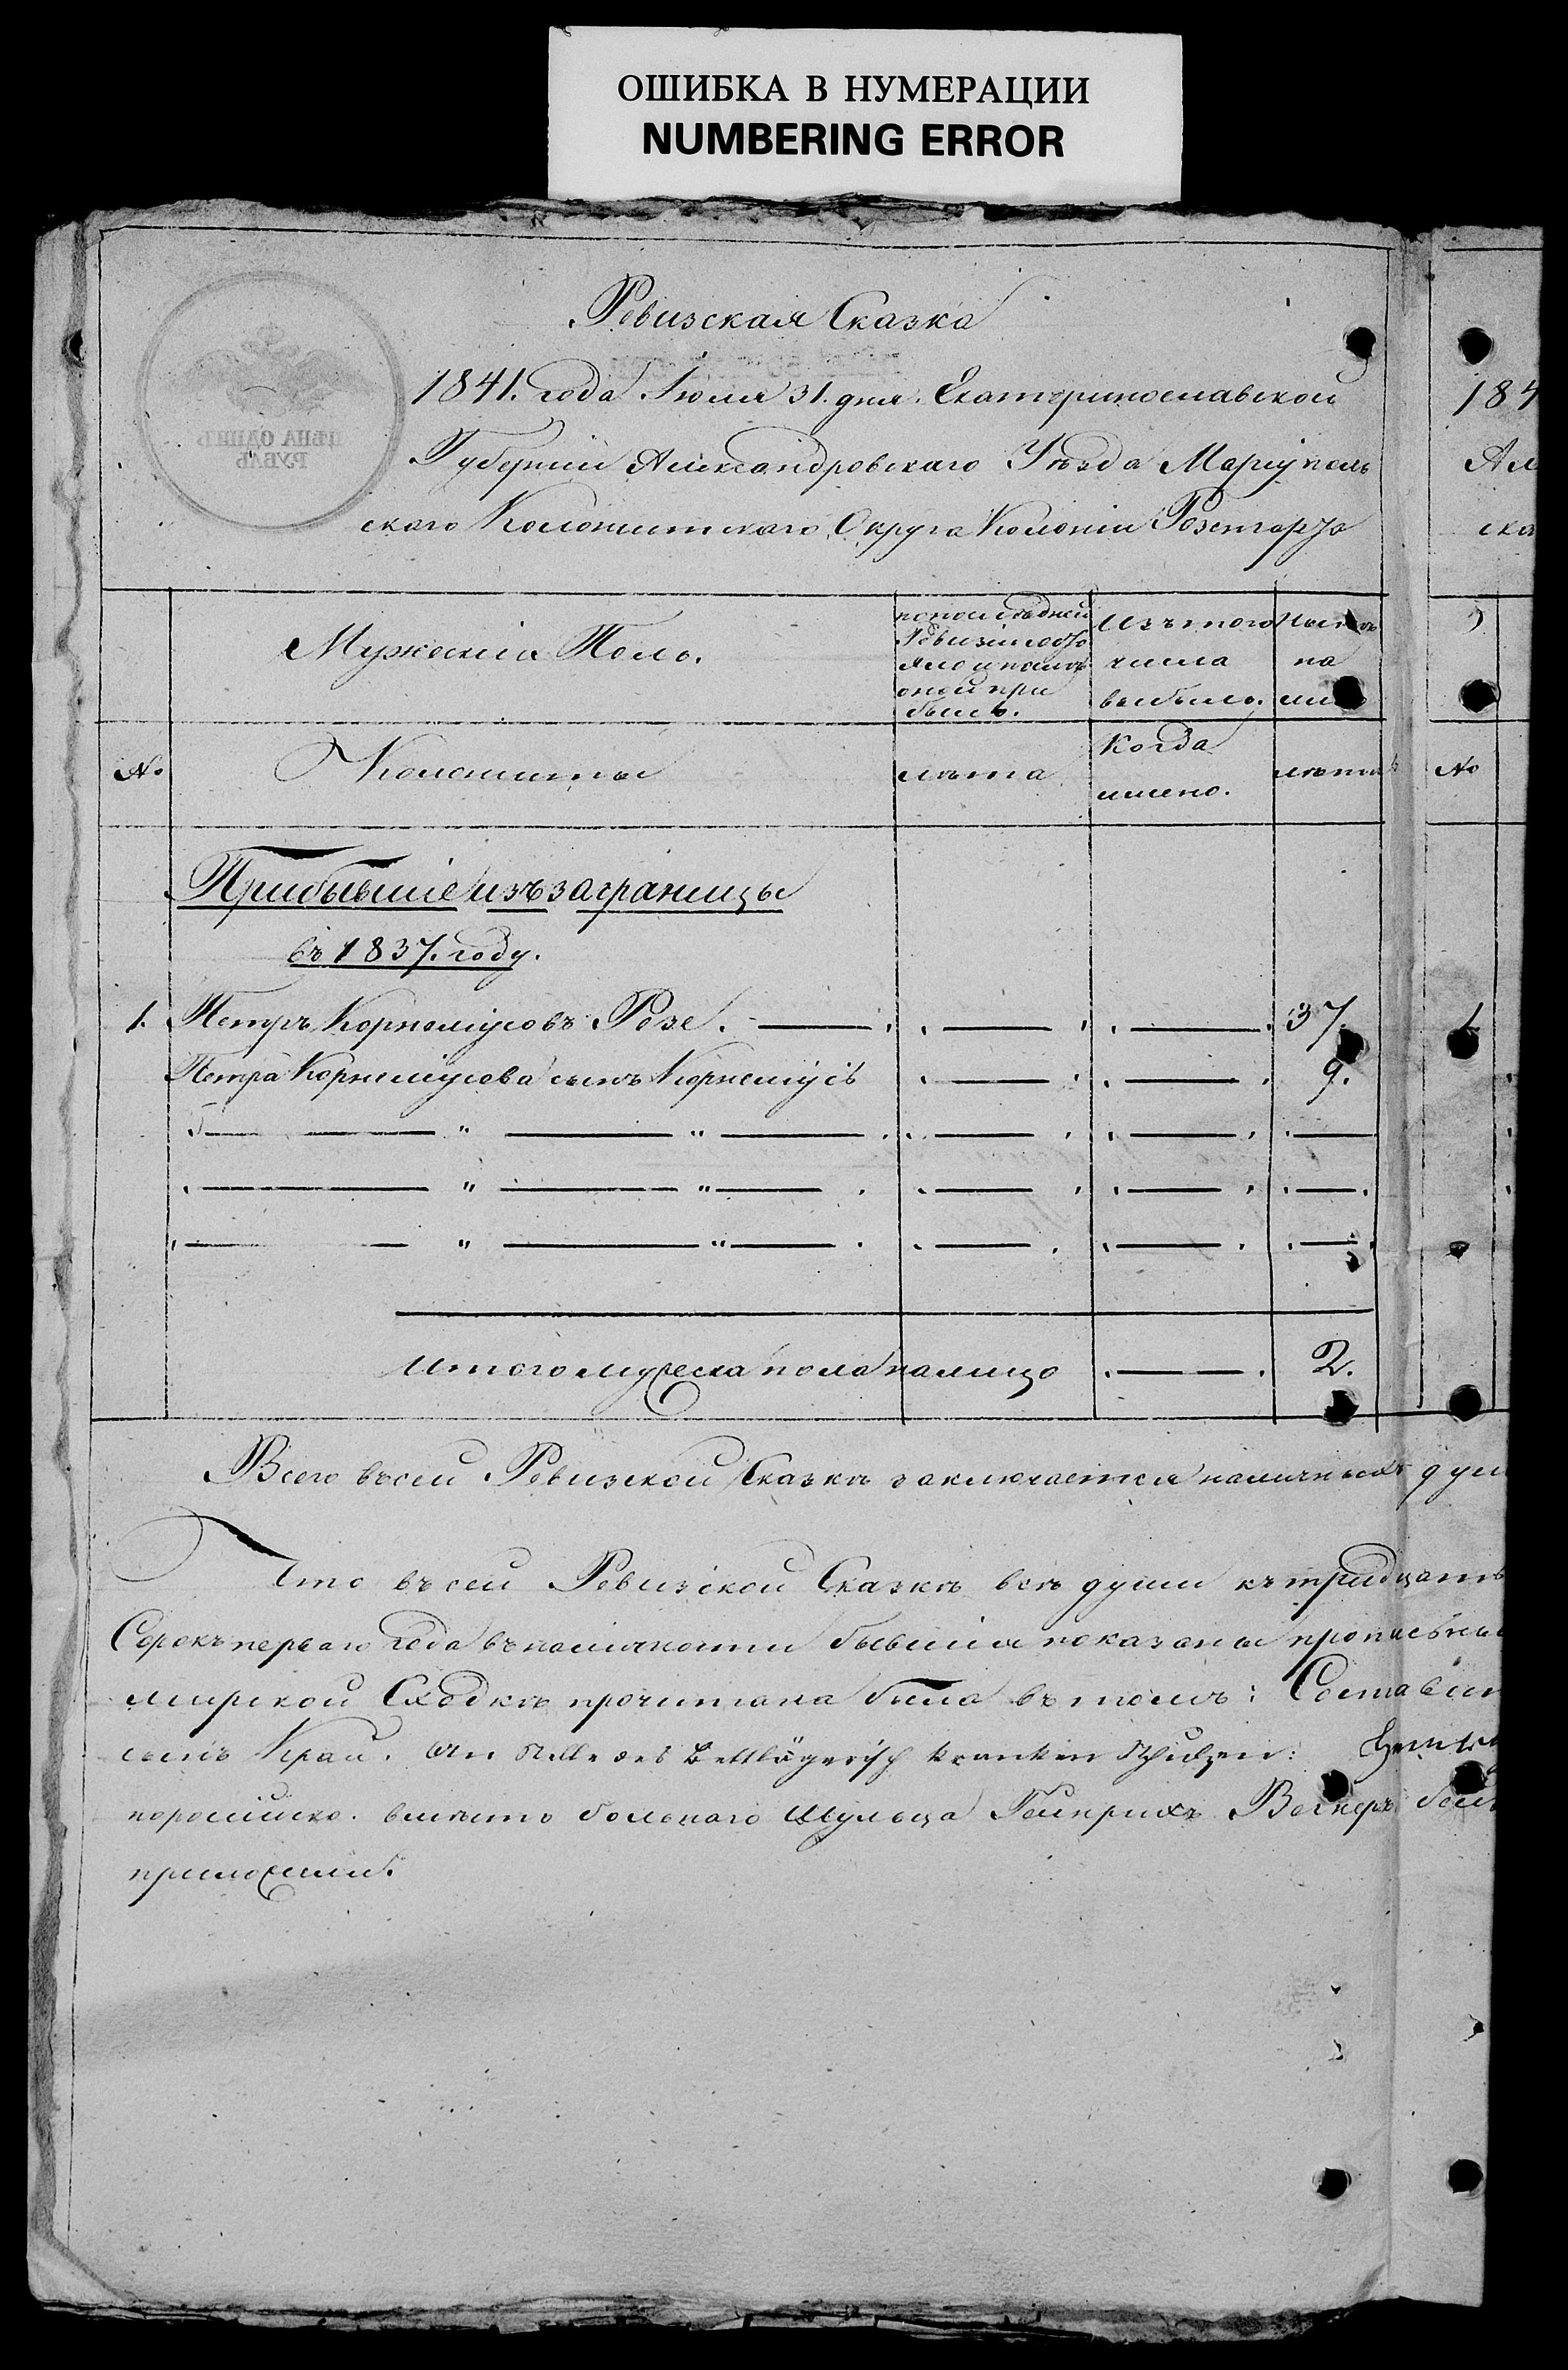 ОШИБКА В НУМЕРАЦИИ
NUMBERING ERROR
Ревизская Сказка
1841. года Іюля 31. дня. Екатеринославской
Губерніи Александровскаго Уѣзда Маріуполь
скаго Колонистскаго Округа Колоніи Розенгартъ
ЦѢНА ОДИНЪ
РУБЛЬ
184
Ал
ска
Мужескій Полъ.
по послѣдней
Ревизіи состо
яло и послѣ
оной при
было.
Изъ того
числа
выбыло.
Нынѣ
на
лицо
№
Колонисты
лѣта
Когда
имено.
лѣта
№
Прибывшіе изъ заграницы
въ 1837. году.
1. Петръ Корнеліусовъ Розе. 37.
1
Петра Корнеліусова сынъ Корнеліусъ 9.
Итого мужеска пола налицо 2.
Всего въ сей Ревизской Сказкѣ заключается наличныхъ душ
Что въ сей Ревизской Сказкѣ всѣ души къ тридцать
Сорокъ перваго года въ наличности бывшія показаны прописных
мирской Сходкѣ прочитана была въ томъ: Составил
сынъ Край. An Stelle des Bettlägerisch kranken Schulzen:
вмѣсто больнаго Шульца Гейнрихъ Вагнеръ
приложил.